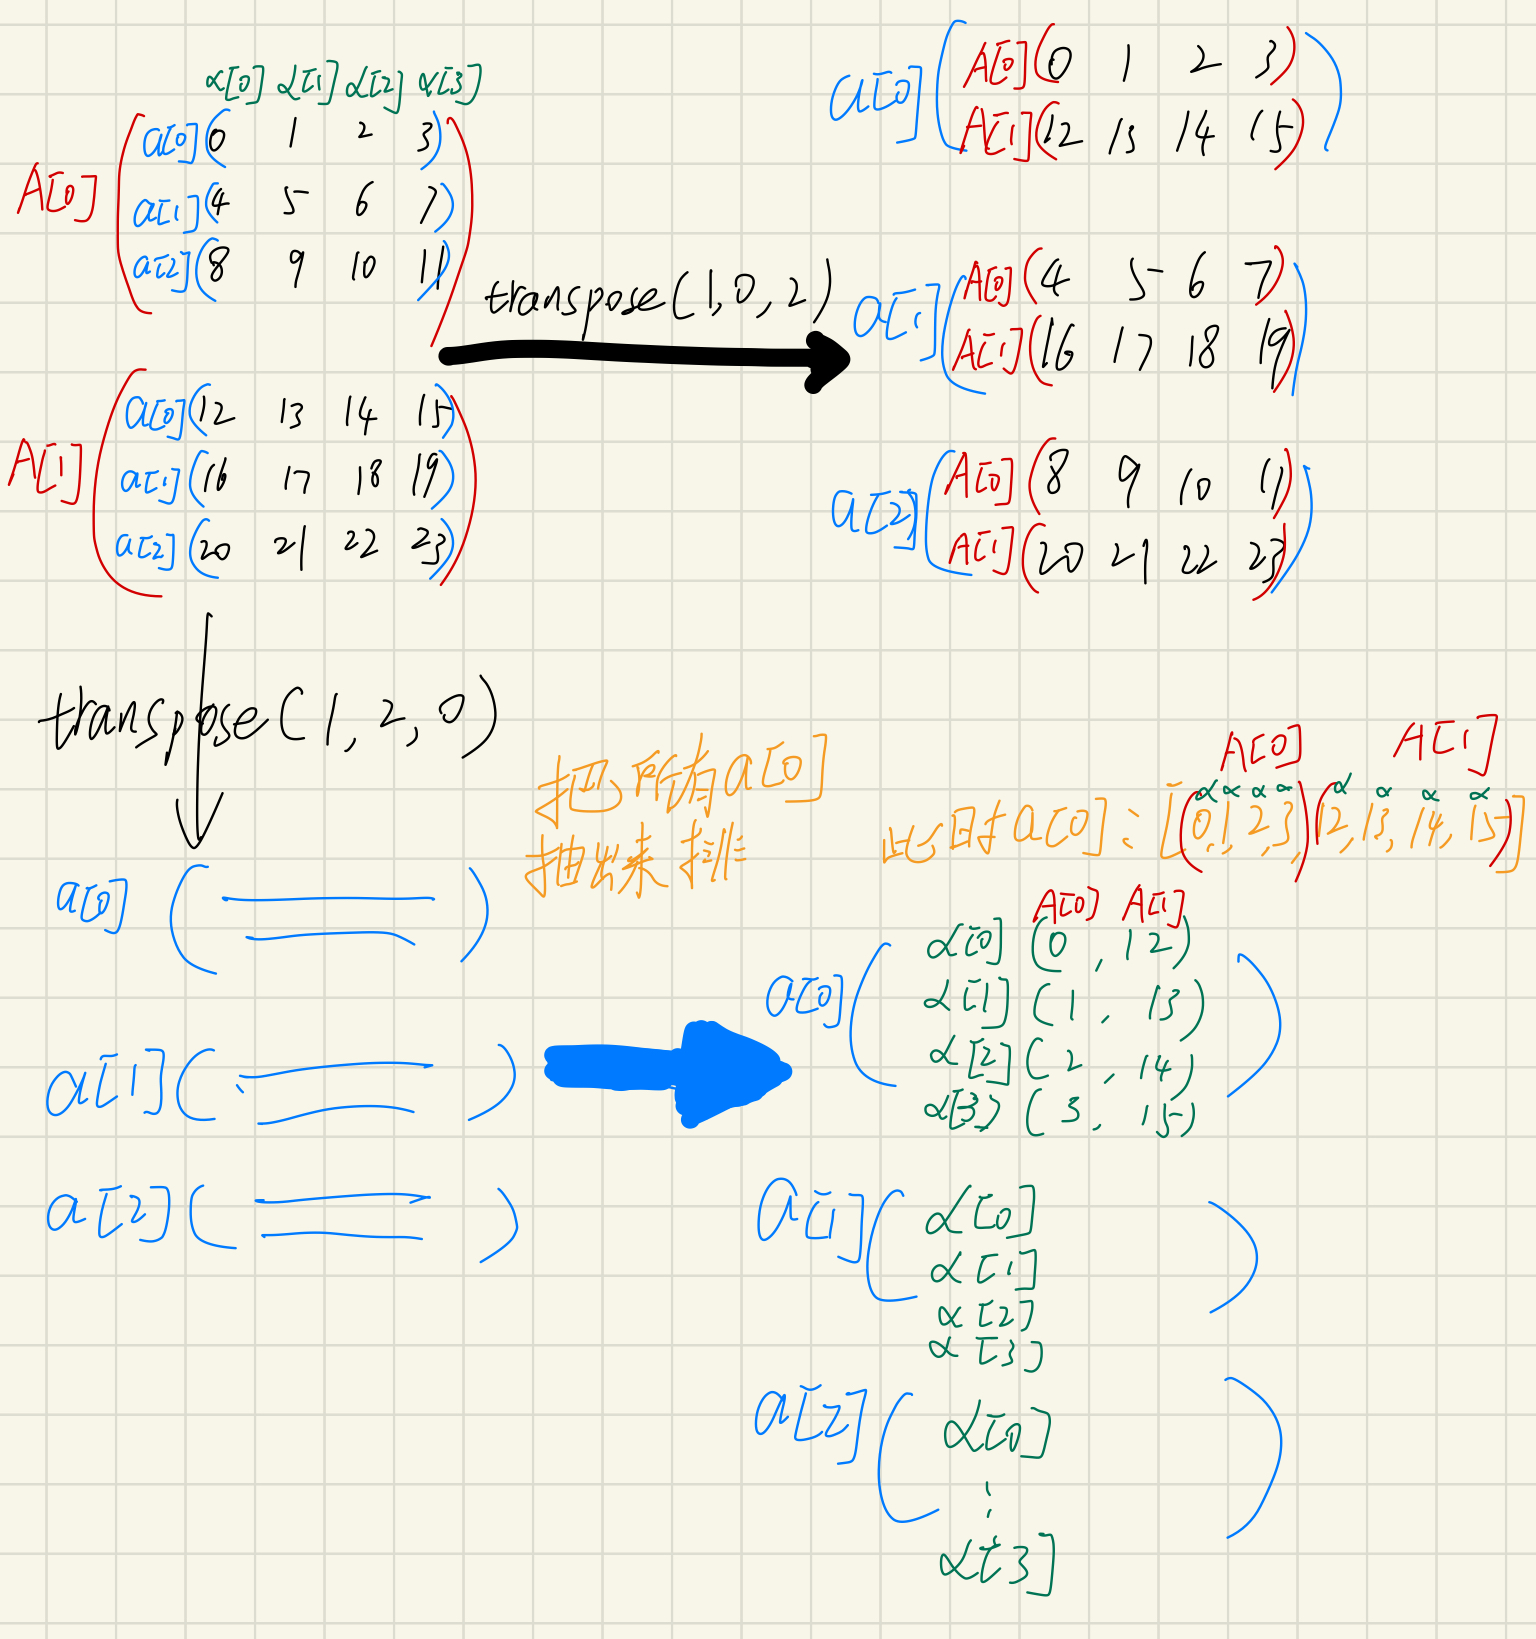 α[0] α[1] α[2] α[3]
A[0]
a[0] (0 1 2 3)
a[1] (4 5 6 7)
a[2] (8 9 10 11)
A[1]
a[0] (12 13 14 15)
a[1] (16 17 18 19)
a[2] (20 21 22 23)
transpose(1,0,2)
a[0]
A[0] (0 1 2 3)
A[1] (12 13 14 15)
a[1]
A[0] (4 5 6 7)
A[1] (16 17 18 19)
a[2]
A[0] (8 9 10 11)
A[1] (20 21 22 23)
transpose(1,2,0)
a[0]
a[1]
a[2]
把所有a[0]
抽出来排
A[0] A[1]
α α α α α α α α
此时a[0]: [(0,1,2,3,)(12,13,14,15)]
A[0] A[1]
a[0]
α[0] (0, 12)
α[1] (1, 13)
α[2] (2, 14)
α[3] (3, 15)
a[1]
α[0]
α[1]
α[2]
α[3]
a[2]
α[0]
⋮
α[3]